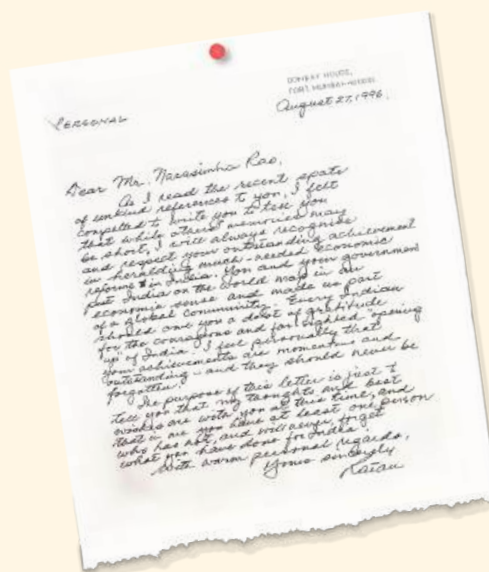 BOMBAY HOUSE,
FORT, MUMBAI-400001.
August 27, 1996.
PERSONAL
Dear Mr. Narasimha Rao,
As I read the recent spate
of unkind references to you, I felt
compelled to write you to tell you
that while others' memories may
be short, I will always recognise
and respect your outstanding achievement
in heralding much-needed economic
reforms in India. You and your government
put India on the world map in an
economic sense and made us part
of a global community. Every Indian
should owe you a debt of gratitude
for the courageous and far sighted "opening
up" of India. I feel personally that
your achievements are momentous and
outstanding - and they should never be
forgotten.
The purpose of this letter is just to
tell you that my thoughts and best
wishes are with you at this time, and
that you have at least one person
who has not, and will never, forget
what you have done for India.
With warm personal regards,
Yours sincerely
Ratan